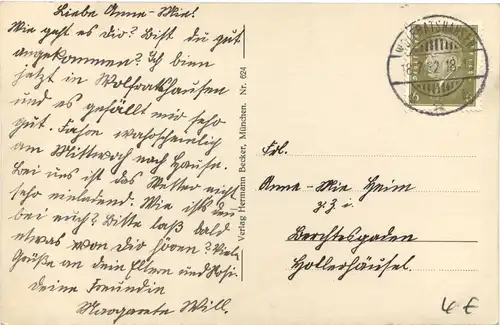 Liebe Anne-Mie!
Wie geht es Dir? Bist du gut
angekommen? Ich bin
jetzt in Wolfratshausen
und es gefällt mir sehr
gut. Fahre wahrscheinlich
am Mittwoch nach Hause.
Bei uns ist das Wetter nicht
sehr einladend. Wie ists den
bei euch? Bitte laß bald
etwas von Dir hören? Viele
Grüße an dein Eltern und Rosi
deine Freundin
Margarete Will.
Verlag Hermann Becker, München. Nr. 624
Frl.
Anne-Mie Heim
z Z i.
Berchtesgaden
Hollerhäusel.
6
6
4 €